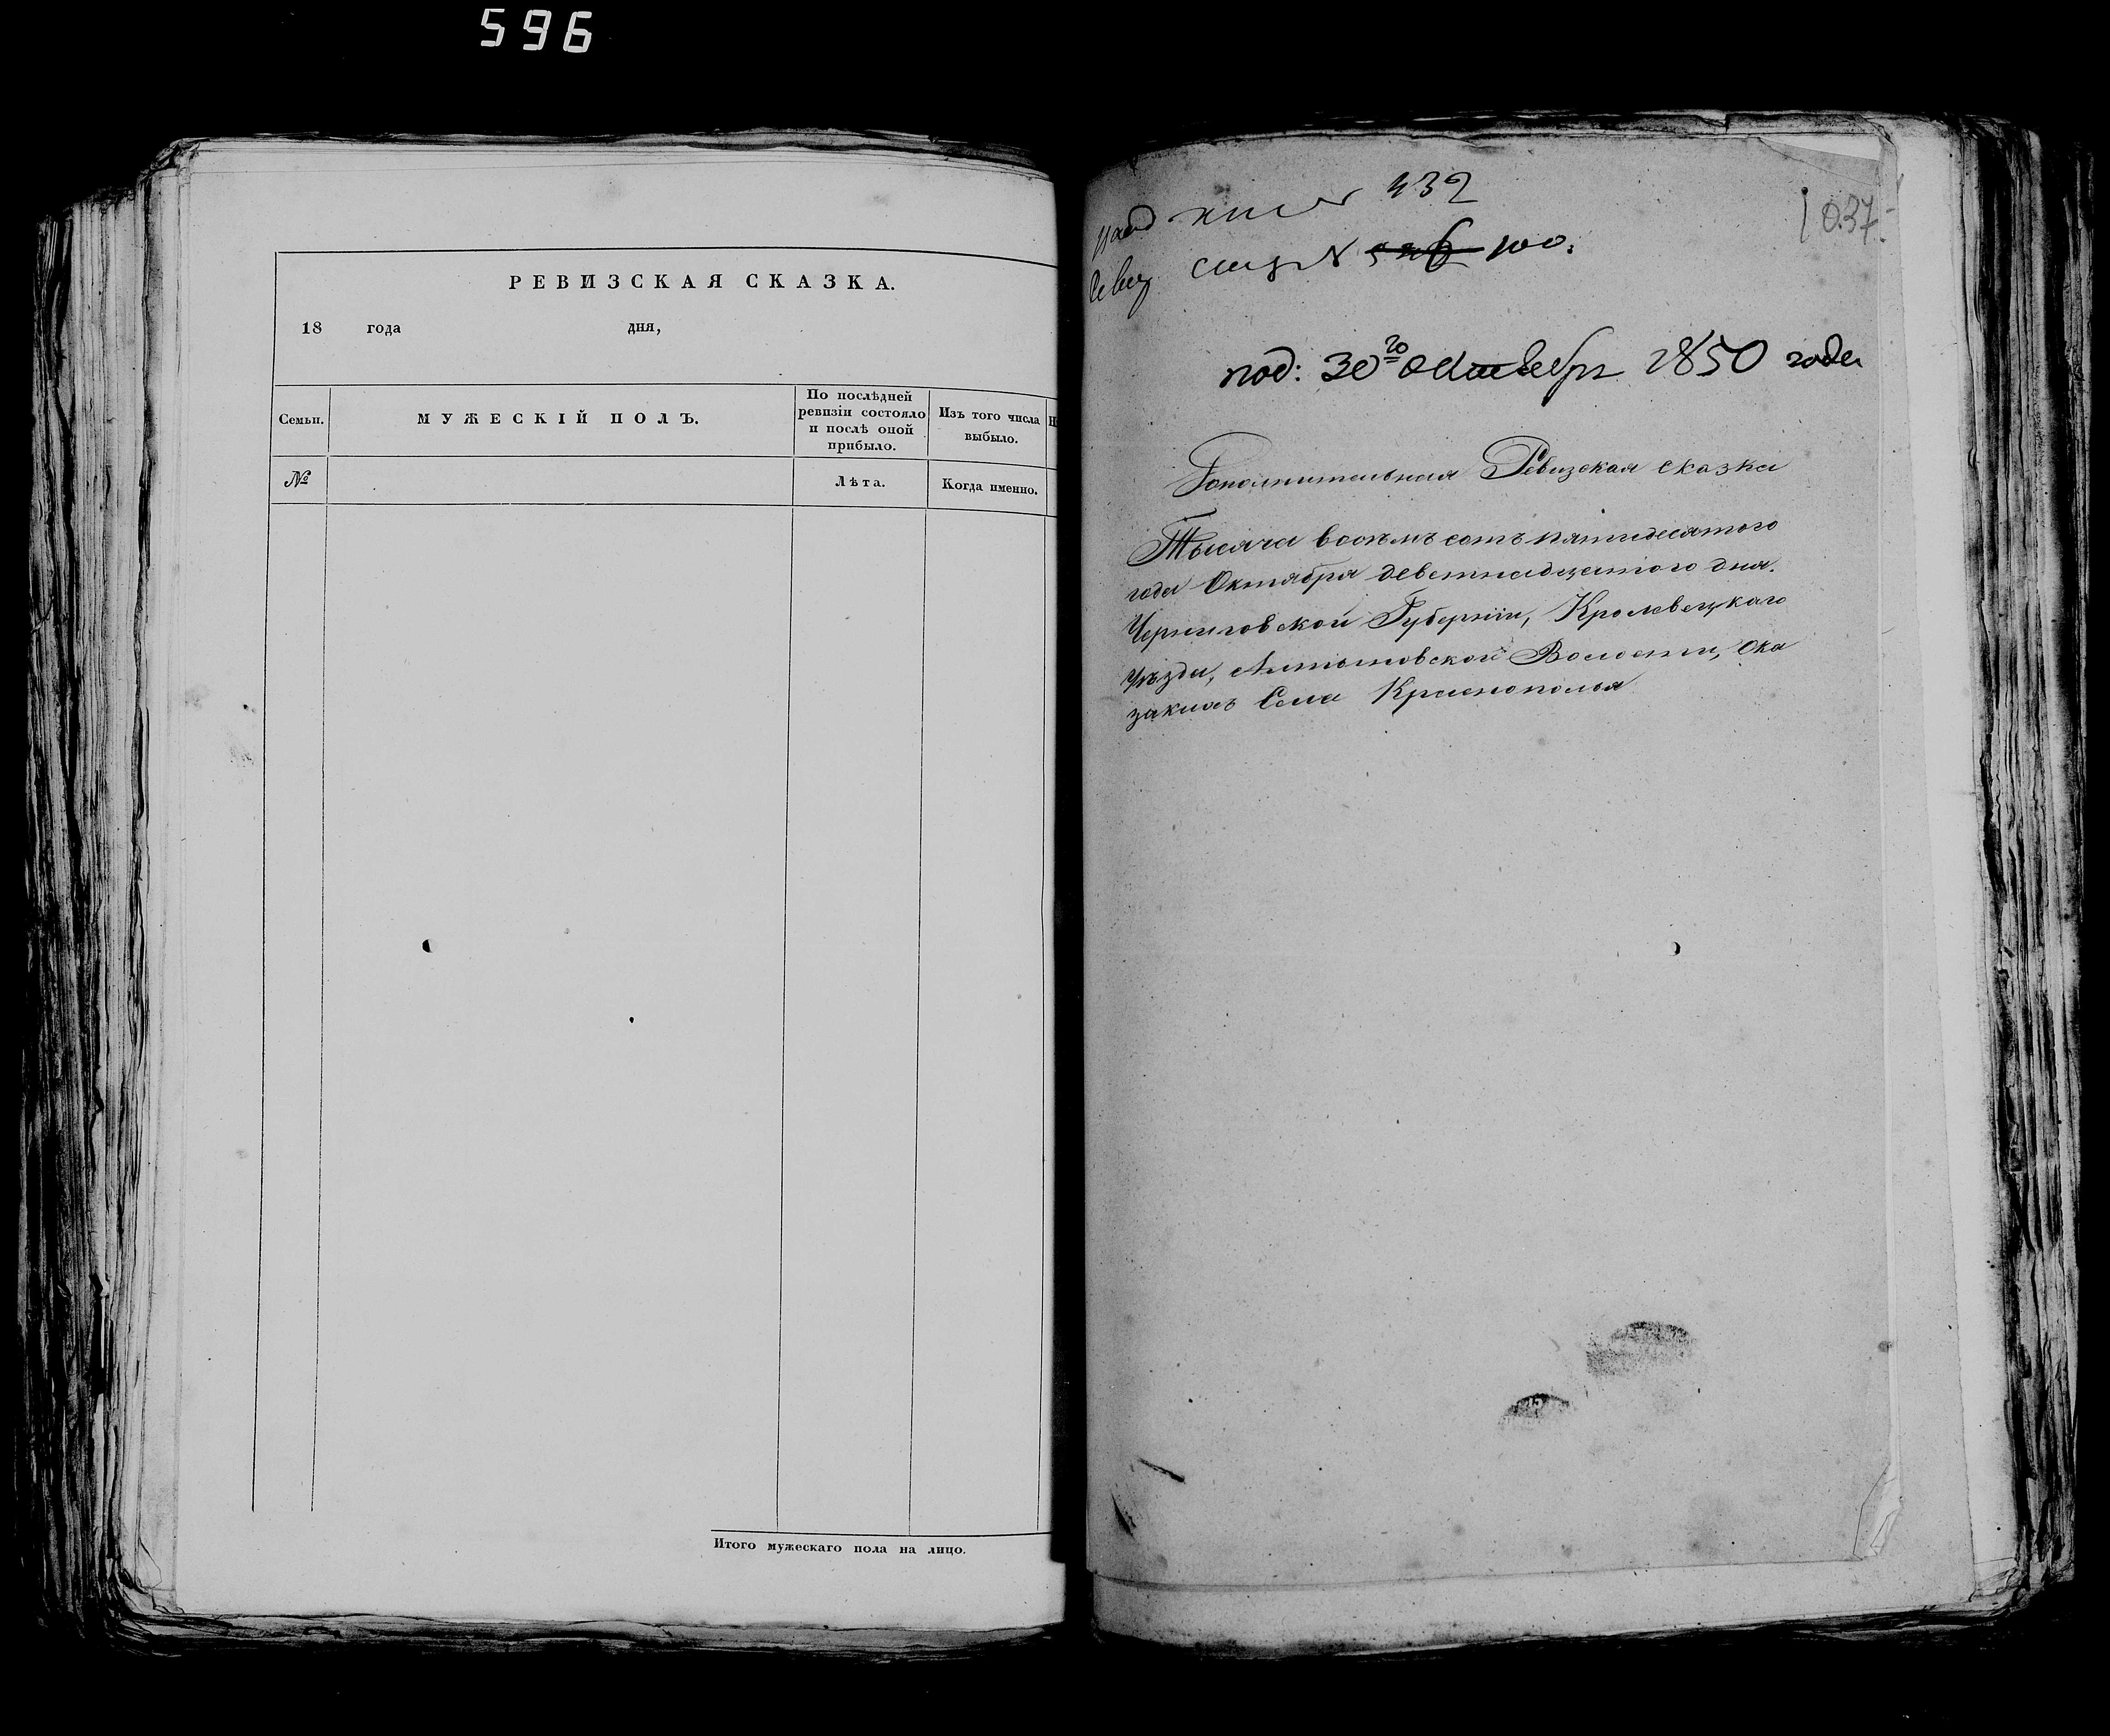 596
РЕВИЗСКАЯ СКАЗКА.
18 года дня,
Семьи.
МУЖЕСКІЙ ПОЛЪ.
По послѣдней
ревизіи состояло
и послѣ оной
прибыло.
Изъ того числа
выбыло.
№
Лѣта.
Когда именно.
Итого мужескаго пола на лицо.
432
1037.
100.
под: 30го Октебря 1850 года
Дополнительная Ревизская сказка
Тысяча восемъ сотъ пятидесятого
года Октября деветнадцатого дня.
Черниговской Губерніи, Кролевецкаго
уѣзда, Алтыновской Волости, Oка
закахъ Села Краснополья